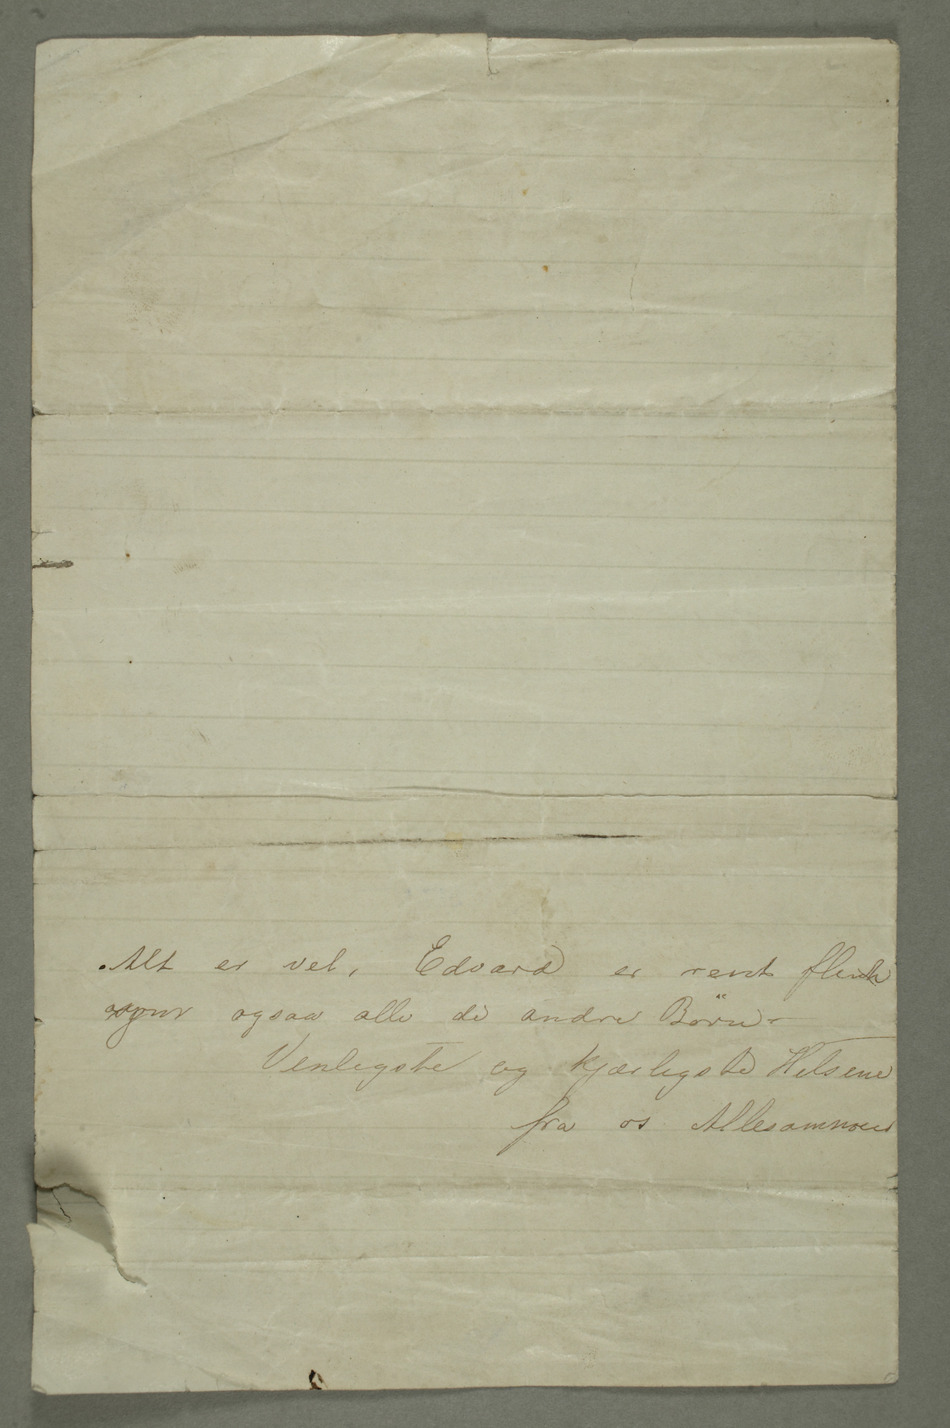 Alt er vel, Edvard er rent flink
ogsaa alle de andre Börn –
Venligste og kjærligste Hilsener
fra os Allesammen